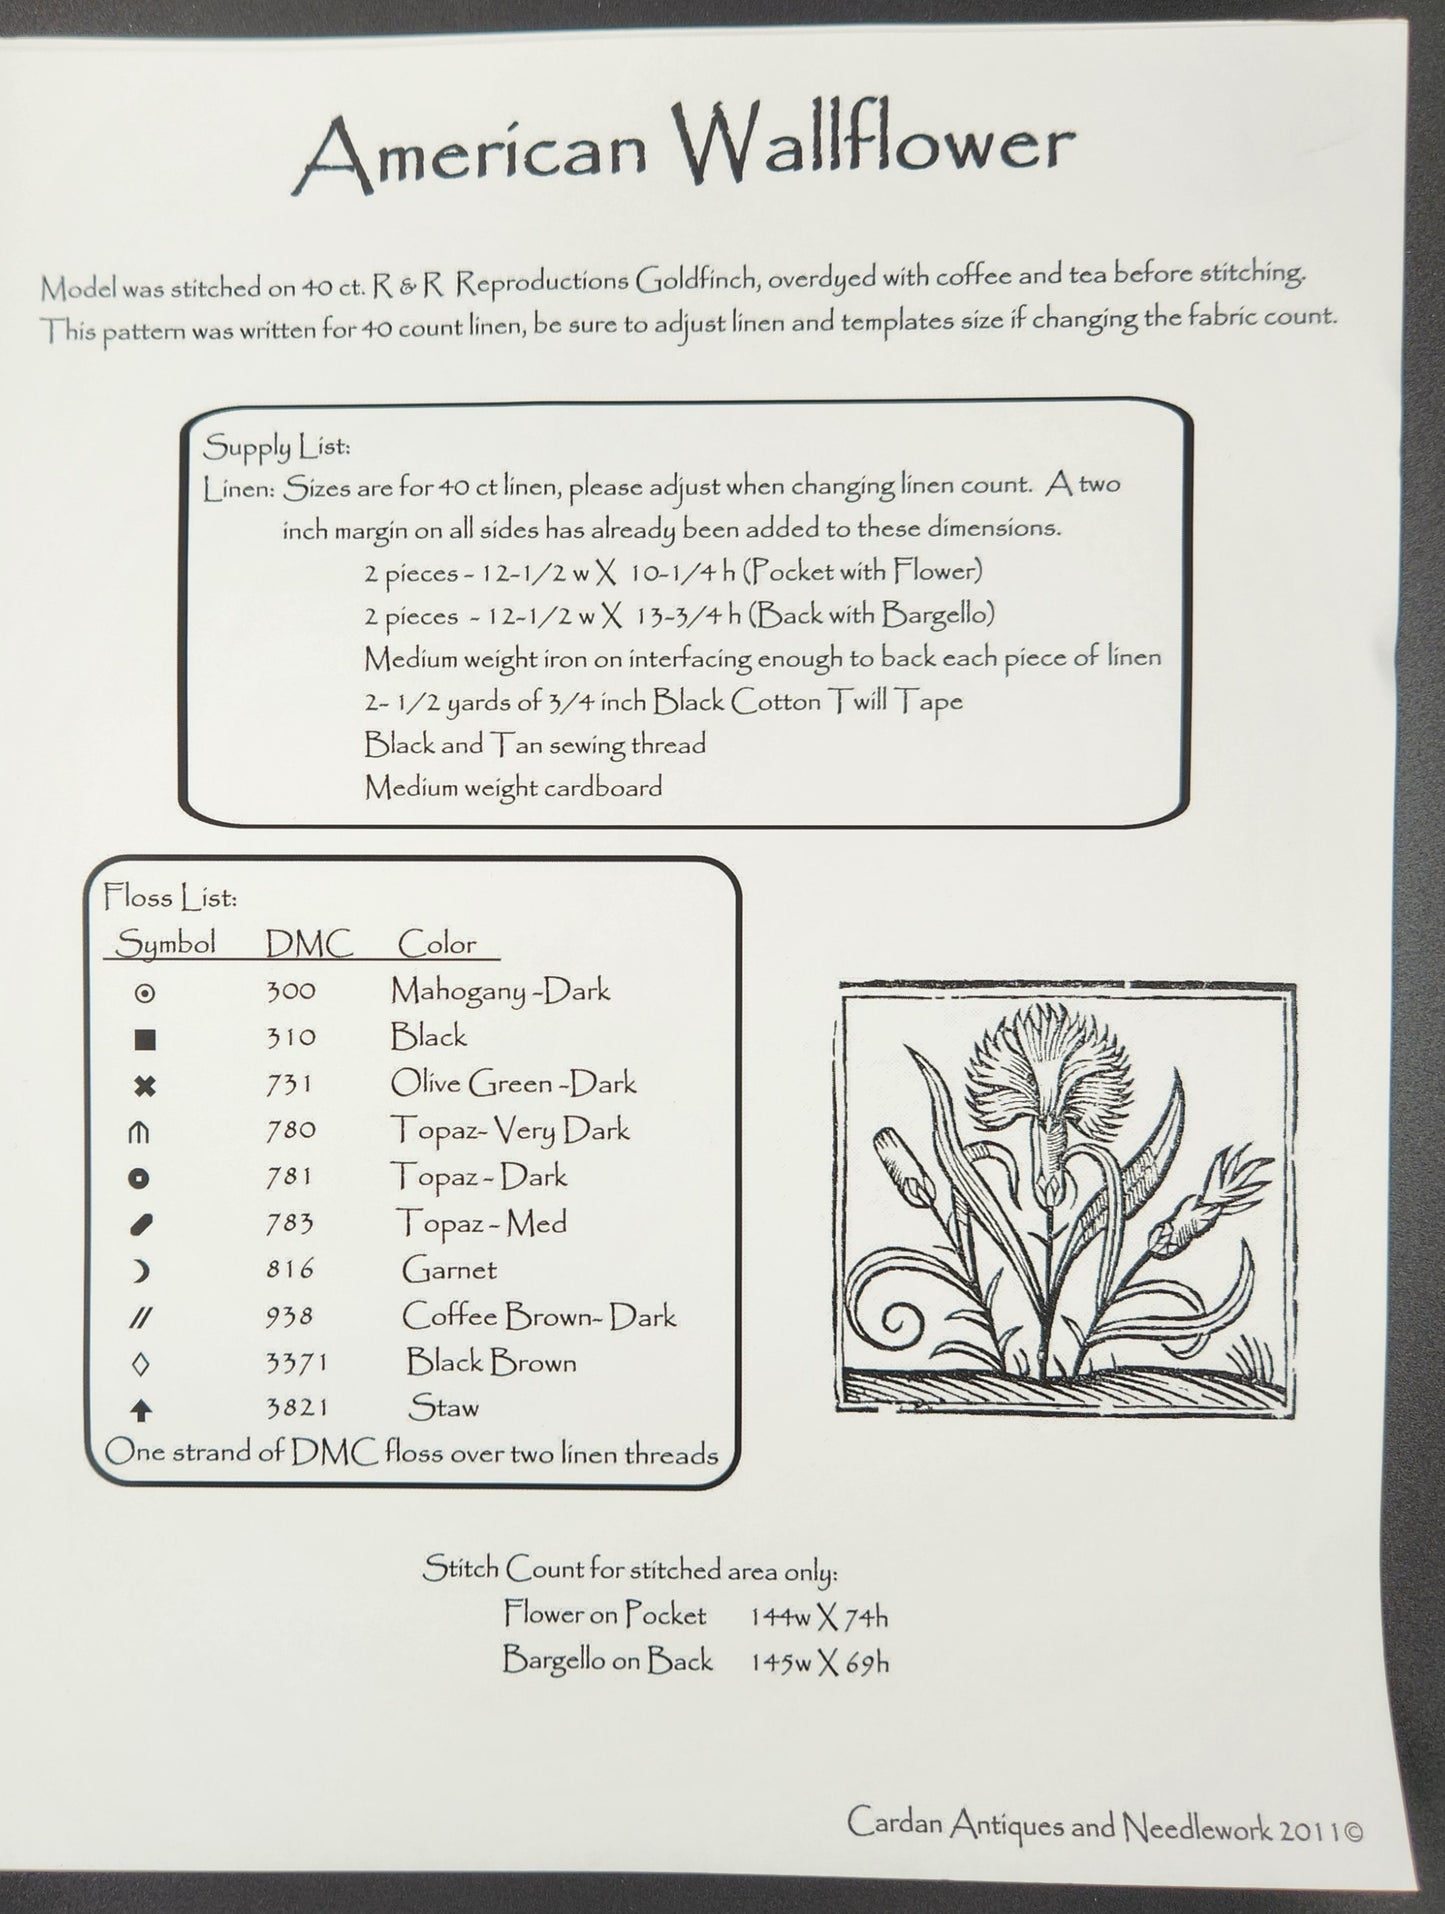 American Wallflower
Model was stitched on 40 ct. R & R Reproductions Goldfinch, overdyed with coffee and tea before stitching.
This pattern was written for 40 count linen, be sure to adjust linen and templates size if changing the fabric count.
Supply List:
Linen: Sizes are for 40 ct linen, please adjust when changing linen count. A two
inch margin on all sides has already been added to these dimensions.
2 pieces - 12-1/2 w X 10-1/4 h (Pocket with Flower)
2 pieces - 12-1/2 w X 13-3/4 h (Back with Bargello)
Medium weight iron on interfacing enough to back each piece of linen
2- 1/2 yards of 3/4 inch Black Cotton Twill Tape
Black and Tan sewing thread
Medium weight cardboard
Floss List:
Symbol DMC Color
300 Mahogany -Dark
310 Black
731 Olive Green -Dark
780 Topaz- Very Dark
781 Topaz - Dark
783 Topaz - Med
816 Garnet
938 Coffee Brown- Dark
3371 Black Brown
3821 Staw
One strand of DMC floss over two linen threads
Stitch Count for stitched area only:
Flower on Pocket 144w X 74h
Bargello on Back 145w X 69h
Cardan Antiques and Needlework 2011©